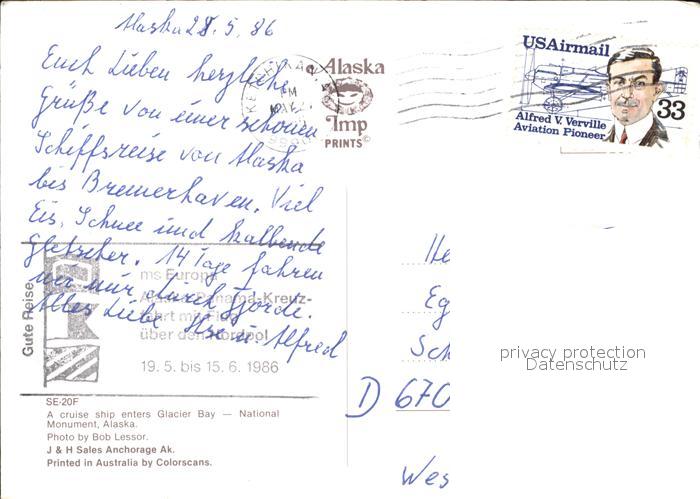 Alaska 28.5.86
Euch Lieben herzliche
Grüße von einer schönen
Schiffsreise von Alaska
bis Bremerhaven. Viel
Eis, Schnee und kalbende
Gletscher. 14 Tage fahren
wir nur durch Fjorde.
Alles Liebe Alfred
Alaska
Imp
PRINTS©
USAirmail
33
Alfred V. Verville
Aviation Pioneer
PM
Gute Reise
ms Europa
Panama-Kreuz-
fahrt mit
über den Nordpol
19. 5. bis 15. 6. 1986
SE-20F
A cruise ship enters Glacier Bay — National
Monument, Alaska.
Photo by Bob Lessor.
J & H Sales Anchorage Ak.
Printed in Australia by Colorscans.
He
Eg
Sch
D 670
Wes
privacy protection
Datenschutz